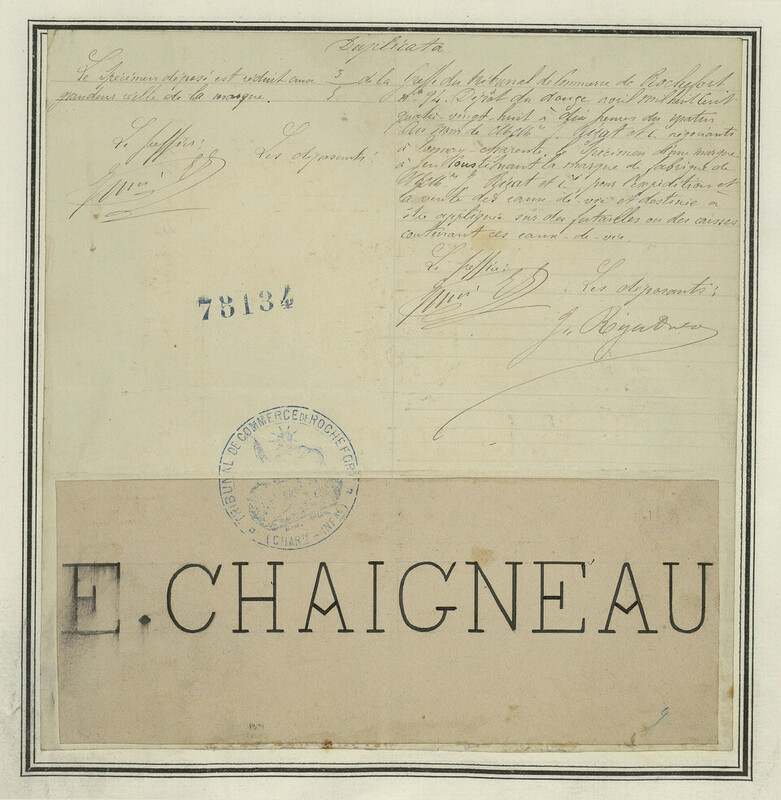 Duplicata
Le Spécimen déposé est réduit aux 3/5 de la
grandeur réelle de la marque.
Le greffier:
Les déposants:
Greffe du tribunal de Commerce de Rochefort
n° 94. Dépôt du douze août mil huit cent
quatre-vingt-huit à dix heures du matin
Au nom de négociants
à Tonnay-Charente, le Spécimen d'une marque
à feu constituant la marque de fabrique de
pour l'expédition et
la vente des eaux-de-vie et destinée à
être appliquée sur des futailles ou des caisses
contenant ces eaux-de-vie.
Le greffier:
Les déposants:
78134
TRIBUNAL DE COMMERCE DE ROCHEFORT
(CHARTE - INFRE)
E. CHAIGNEAU
9